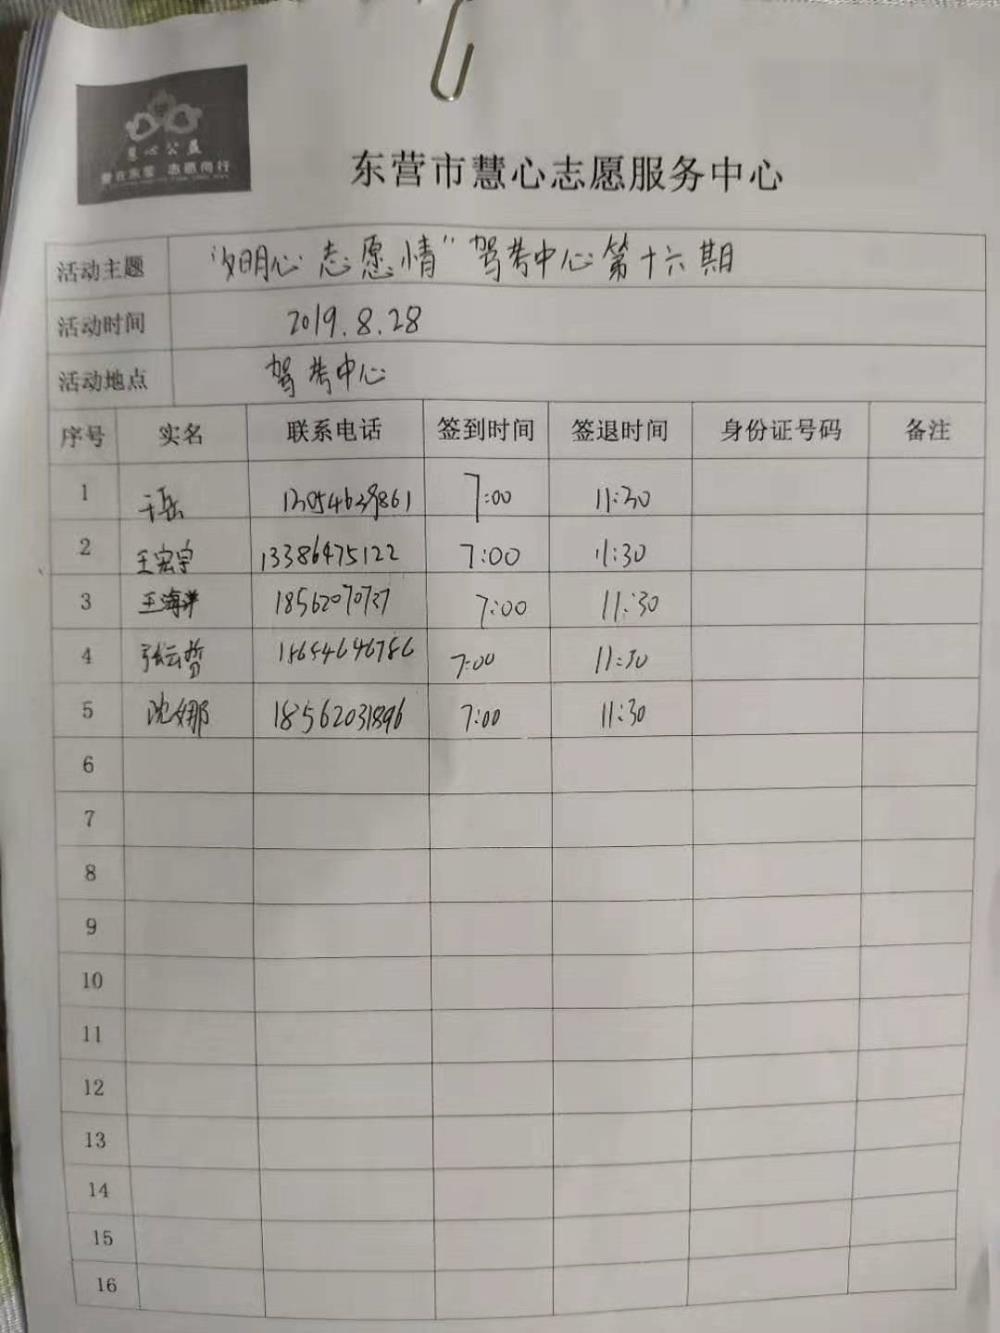 慧心公益
爱在东营 志愿同行
东营市慧心志愿服务中心
活动主题 "文明心 志愿情"驾考中心第十六期
活动时间 2019.8.28
活动地点 驾考中心
序号 实名 联系电话 签到时间 签退时间 身份证号码 备注
1 于岳 13054639861 7:00 11:30
2 王宏宇 13386475122 7:00 11:30
3 王海洋 18562070727 7:00 11:30
4 张云哲 18654646786 7:00 11:30
5 沈娜 18562031896 7:00 11:30
6
7
8
9
10
11
12
13
14
15
16